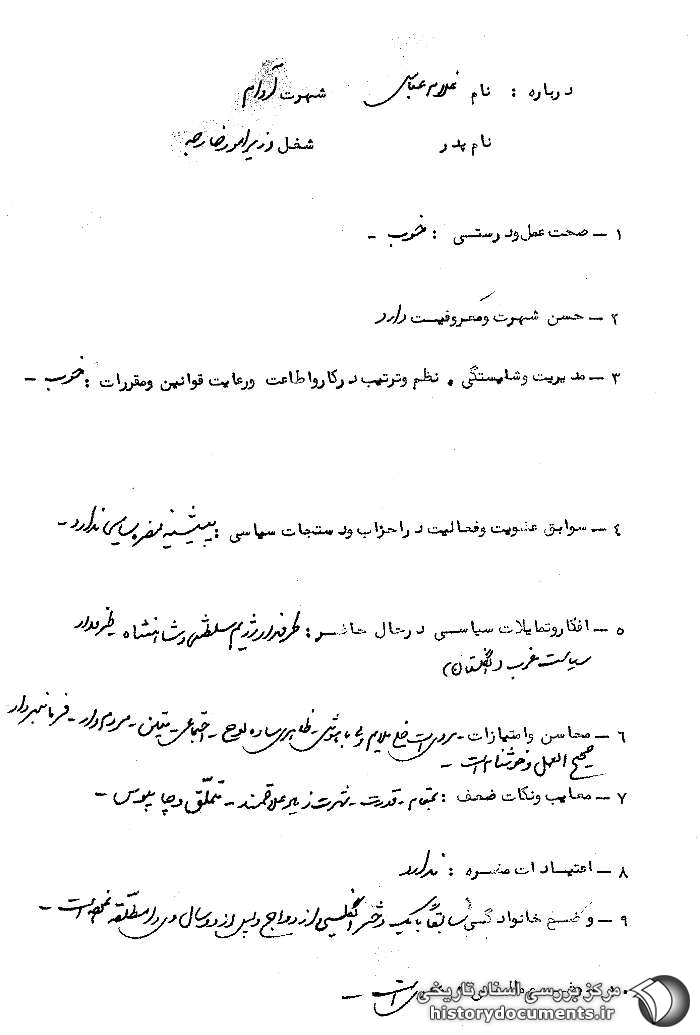 درباره : نام غلامعباس شهرت آرام
نام پدر شغل وزیر امور خارجه
۱ – صحت عمل و درستی : خوب –
۲ – حسن شهرت و معروفیت دارد
۳ – مدیریت و شایستگی . نظم و ترتیب در کار و اطاعت ورعایت قوانین ومقررات : خوب –
۴ – سوابق عضویت وفعالیت در احزاب ودستجات سیاسی : پیشینه مضره سیاسی ندارد –
۵ – افکار وتمایلات سیاسی درحال حاضر : طرفدار رژیم سلطنتی و شاهنشاه طرفدار
سیاست غرب (انگلستان)
۶ – محاسن وامتیازات – مردی است ملایم ولی باهوش – ظاهری ساده لوح – اجتماعی – متین – مردم دار – فرمانبردار
صحیح العمل و خوشنام است –
۷ – معایب ونکات ضعف : بمقام – قدرت – شهرت زیاد علاقمند – تملّق و چاپلوس –
۸ – اعتیادات مضره : ندارد
۹ – وضع خانوادگی سابقاً با یک دختر انگلیسی ازدواج و پس از دو سال وی را مطلّقه نموده است –
است –
مرکز بررسی اسناد تاریخی
historydocuments.ir